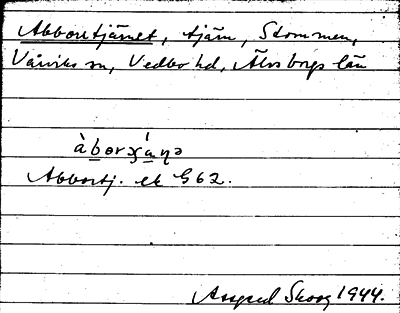 Abborrtjärnet, tjärn, Stommen,
Vårviks sn, Vedbo hd, Älvsborgs län
àbərχ́aṇə
Abbortj. ek G62.
Assar Skoog 1944.